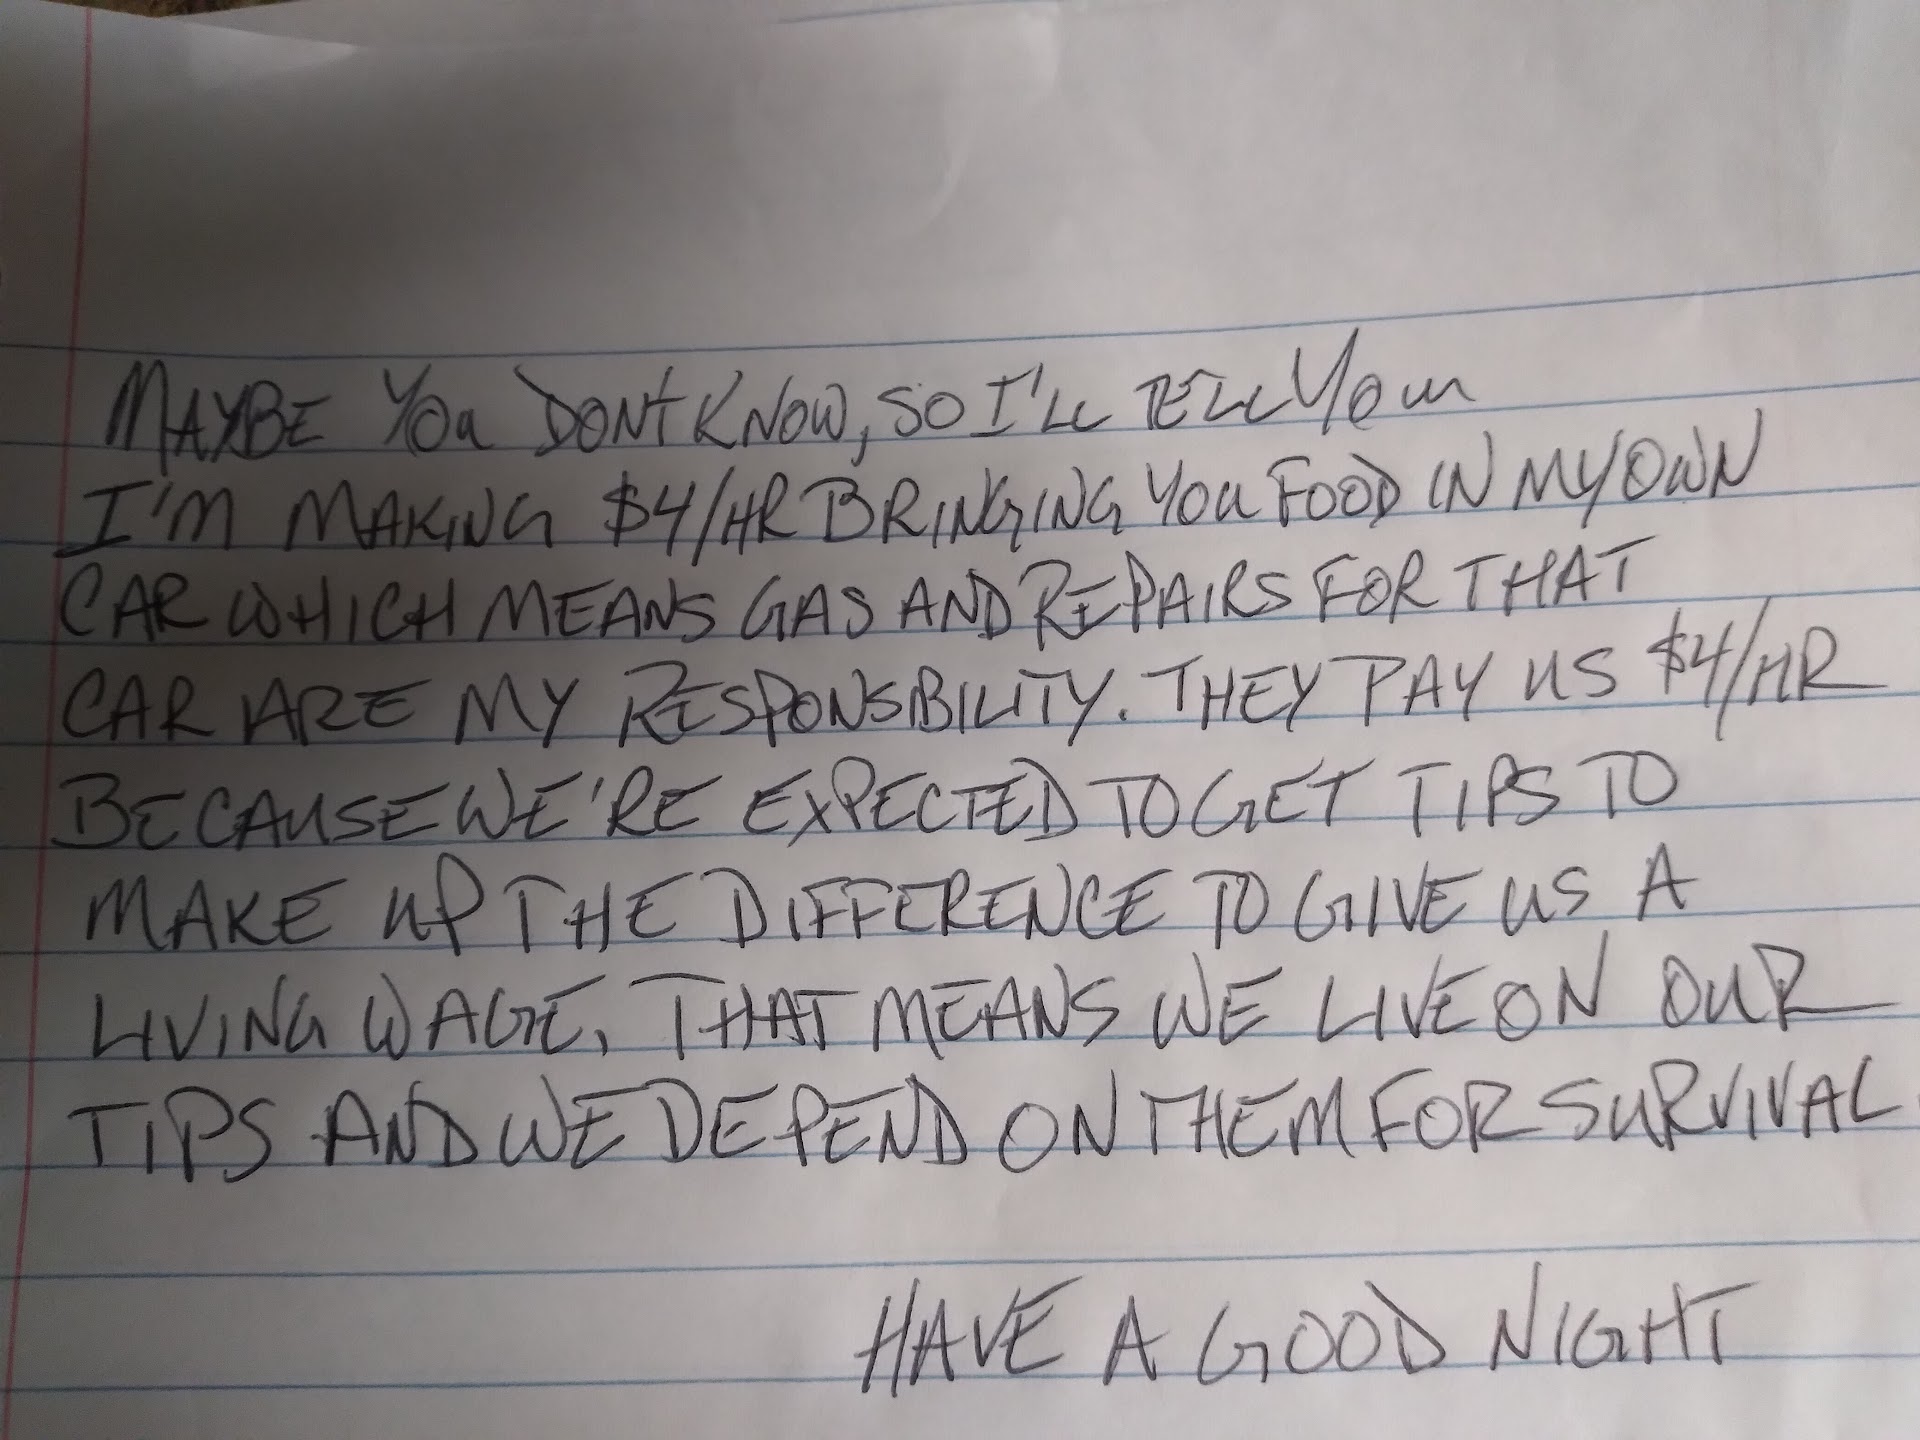 MAYBE YOU DONT KNOW, SO I'LL TELL YOU
I'M MAKING $4/HR BRINGING YOU FOOD IN MY OWN
CAR WHICH MEANS GAS AND REPAIRS FOR THAT
CAR ARE MY RESPONSIBILITY. THEY PAY US $4/HR
BECAUSE WE'RE EXPECTED TO GET TIPS TO
MAKE UP THE DIFFERENCE TO GIVE US A
LIVING WAGE, THAT MEANS WE LIVE ON OUR
TIPS AND WE DEPEND ON THEM FOR SURVIVAL.
HAVE A GOOD NIGHT